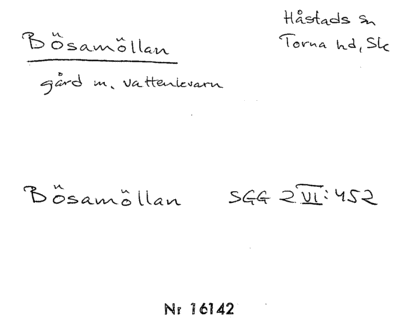 Bösamöllan
Håstads sn
Torna hd, Sk
gård m. vattenkvarn
Bösamöllan SGG 2 VI: 452
Nr 16142